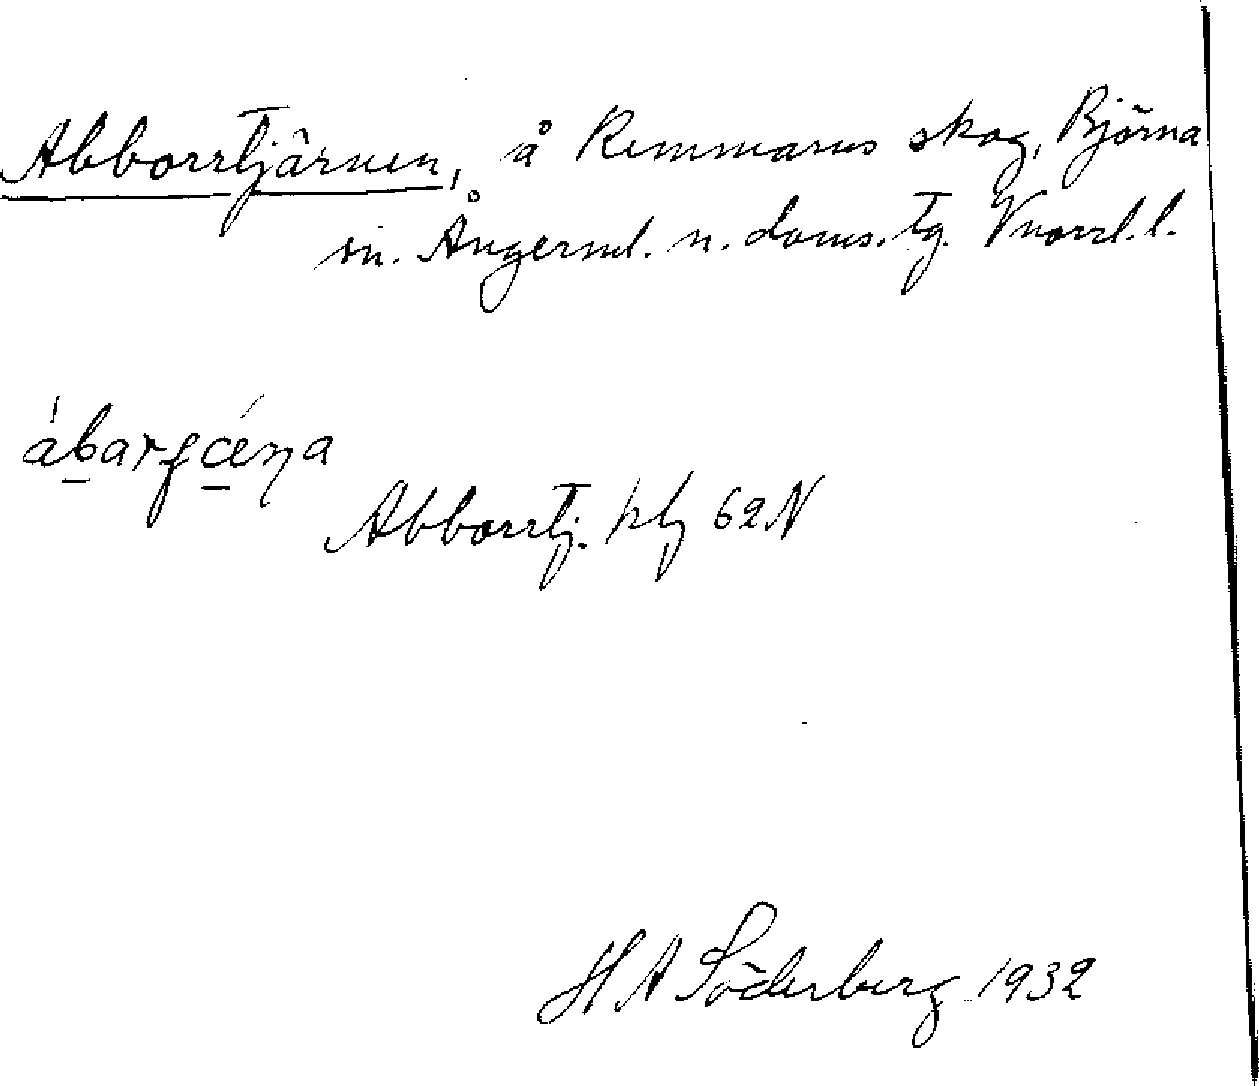 Abborrtjärnen, å Remmarns skog, Björna
sn. Ångerml. n. doms. tg. Vnorrl. l.
Abborrtj. kbl 62N
H A Söderberg 1932